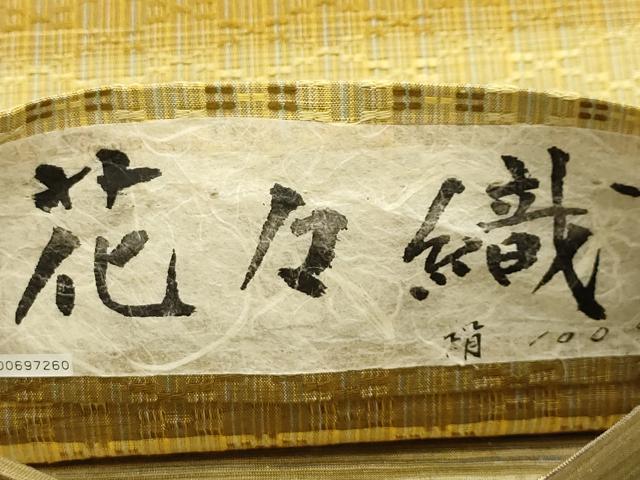 花々織
絹 100
00697260